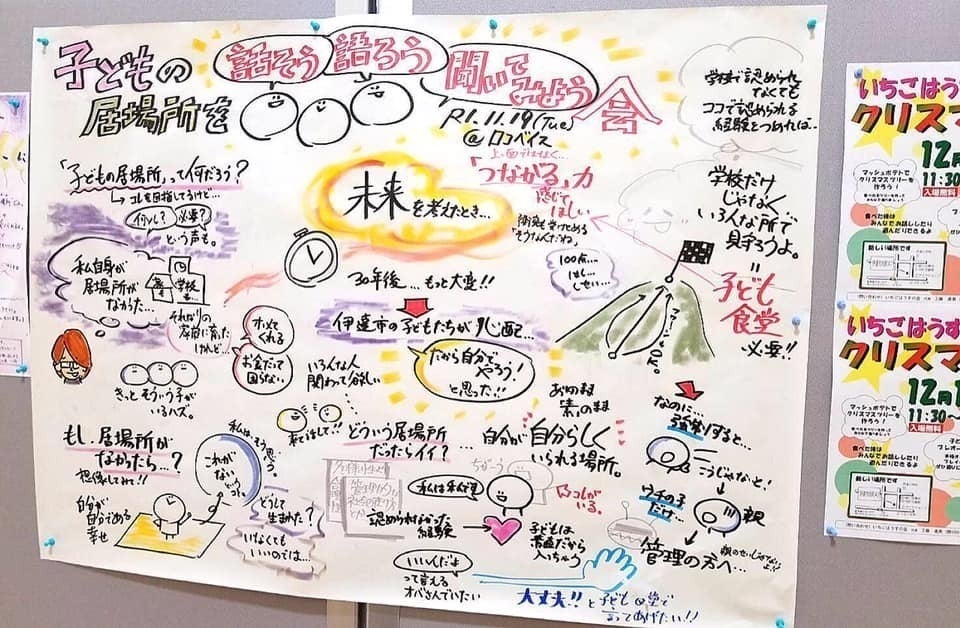 子どもの
居場所を
話そう
語ろう
聞いて
みよう
会
R1.11.19(Tue)
@ロコベイス
学校で認められ
なくても
ココで認められる
経験をつめれば…
「子どもの居場所」って何だろう?
コレを目指してるけど…
必要?
という声も。
未来を考えたとき…
「つながる」力
感じて
ほしい
学校だけ
じゃなく
いろんな所で
見守ろうよ。
=
子ども
食堂
必要!!
私自身が
居場所が
なかった…
学校
30年後…もっと大変!!
100点…
伊達市の子どもたちが心配…
だから自分で
やろう!
と思った!!
ホメて
くれる
お金だって
困らない
いろんな人
関わって欲しい
きっとそういう子が
いるハズ。
来てほしい!!
どういう居場所
だったらイイ?
あのまま
「素」のまま
…自分が自分らしく
いられる場所。
なのに…
頑張りすると…
こうじゃなきゃ!
ウチの子
だけ…
親
管理の方へ…
もし、居場所が
なかったら…?
想像してみて!!
私は、そう思う。
これが
ない
自分が
自分である
幸せ
どうして
生まれた?
いなくても
いいのでは…
ちがう
コレが
いる。
認められなかった
経験
子どもは
素直だから
入っちゃう
いいんだよ
って言える
オバさんでいたい
大丈夫!!と子ども食堂で
言ってあげたい!!
いちごはうす
クリスマ
12月
11:30
入場無料
マッシュポテトで
クリスマスツリーを
作ろう!
食べた後は
みんなでお話ししたり
遊んだりできるよ
新しい場所です
いちごはうす
クリスマ
12月1
11:30～
入場無料
マッシュポテトで
クリスマスツリーを
作ろう!
食べた後は
みんなでお話ししたり
遊んだりできるよ
新しい場所です